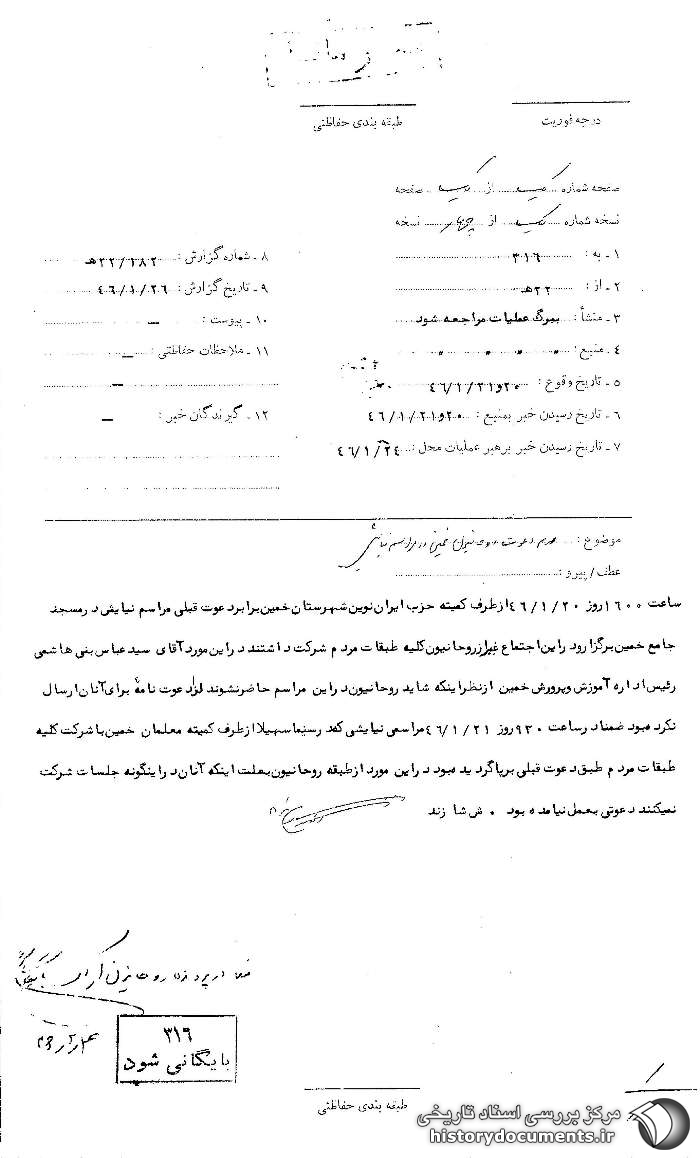 درجه فوریت
طبقه بندی حفاظتی
صفحه شماره یک از یک صفحه
نسخه شماره یک از چهار نسخه
۱ ـ به : ۳۱۶
۲ ـ از : ۲۲هـ
۳ ـ منشأ : ببرگ عملیات مراجعه شود
۴ ـ منبع : " " " "
۵ ـ تاریخ وقوع : ۲۰و۴۶/۱/۲۱
۶ ـ تاریخ رسیدن خبر بمنبع : ۲۰و۴۶/۱/۲۱
۷ ـ تاریخ رسیدن خبر برهبر عملیات محل : ۴۶/۱/۲۴
۸ ـ شماره گزارش : ۲۲/۱۸۲هـ
۹ ـ تاریخ گزارش : ۴۶/۱/۲۶
۱۰ ـ پیوست : ـ
۱۱ ـ ملاحظات حفاظتی : ـ
ـ
۱۲ ـ گیرندگان خبر : ـ
موضوع : عدم دعوت روحانیون خمین در مراسم نیایش
عطف / پیرو :
ساعت ۱۶۰۰ روز ۴۶/۱/۲۰ ازطرف کمیته حزب ایران نوین شهرستان خمین برابر دعوت قبلی مراسم نیایشی در مسجد
جامع خمین برگزار ودراین اجتماع غیراز روحانیون کلیه طبقات مردم شرکت داشتند دراین مورد آقای سیدعباس بنی هاشمی
رئیس اداره آموزش وپرورش خمین ازنظراینکه شاید روحانیون دراین مراسم حاضرنشوند لذا دعوت نامهٔ برای آنان ارسال
نکرده بود ضمنا در ساعت ۹۳۰ روز ۴۶/۱/۲۱ مراسمی نیایشی در سینما سهیلا ازطرف کمیته معلمان خمین باشرکت کلیه
طبقات مردم طبق دعوت قبلی برپا گردیده بود دراین مورد ازطبقه روحانیون بعلت اینکه آنان دراینگونه جلسات شرکت
نمیکنند دعوتی بعمل نیامده بود . ش شازند
۳۱۶
بایگانی شود
طبقه بندی حفاظتی
مرکز بررسی اسناد تاریخی
historydocuments.ir